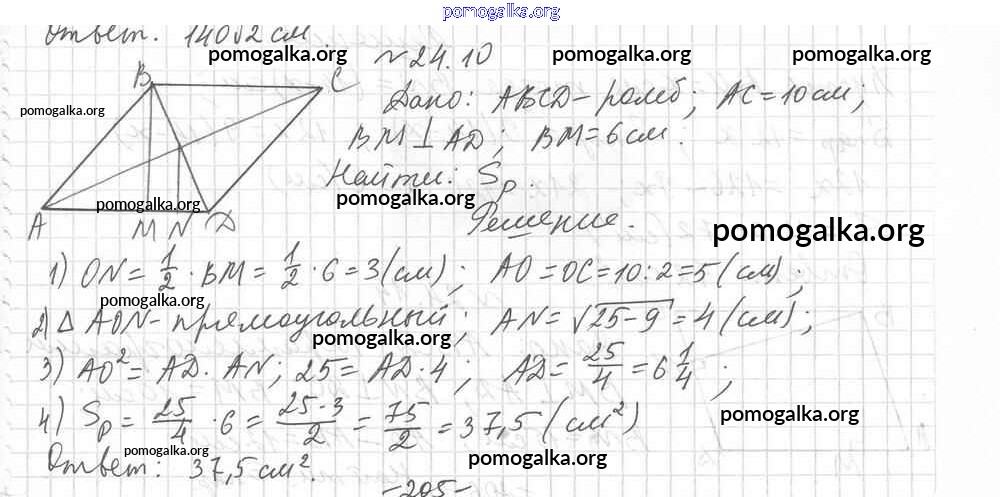 pomogalka.org
Ответ: 140√2 см.
pomogalka.org pomogalka.org pomogalka.org
№24.10
B C
pomogalka.org
Дано: ABCD – ромб; AC = 10 см;
BM ⊥ AD; BM = 6 см.
Найти: Sр.
pomogalka.org pomogalka.org
A M N D
Решение.
pomogalka.org
1) ON = 1/2 · BM = 1/2 · 6 = 3 (см); AO = OC = 10 : 2 = 5 (см);
pomogalka.org
2) △ AON – прямоугольный; AN = √25 – 9 = 4 (см);
pomogalka.org
3) AO² = AD · AN; 25 = AD · 4; AD = 25/4 = 6 1/4;
4) Sр = 25/4 · 6 = 25 · 3/2 = 75/2 = 37,5 (см²)
pomogalka.org
Ответ: 37,5 см².
pomogalka.org pomogalka.org
–205–